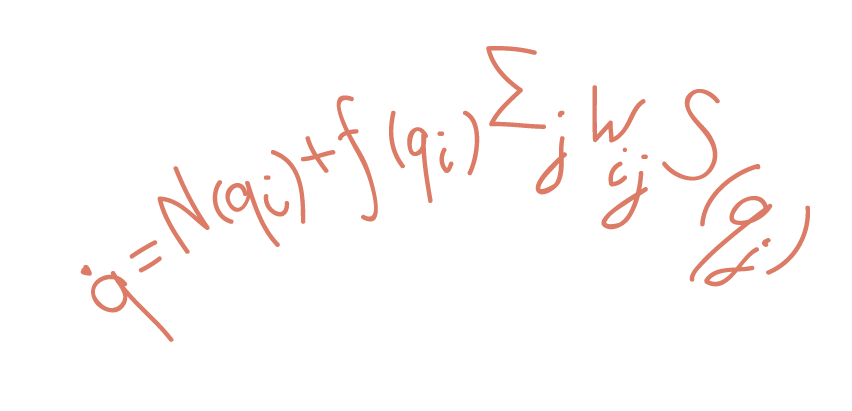 q̇ = N(qᵢ) + f(qᵢ) Σⱼ Wᵢⱼ S(qⱼ)